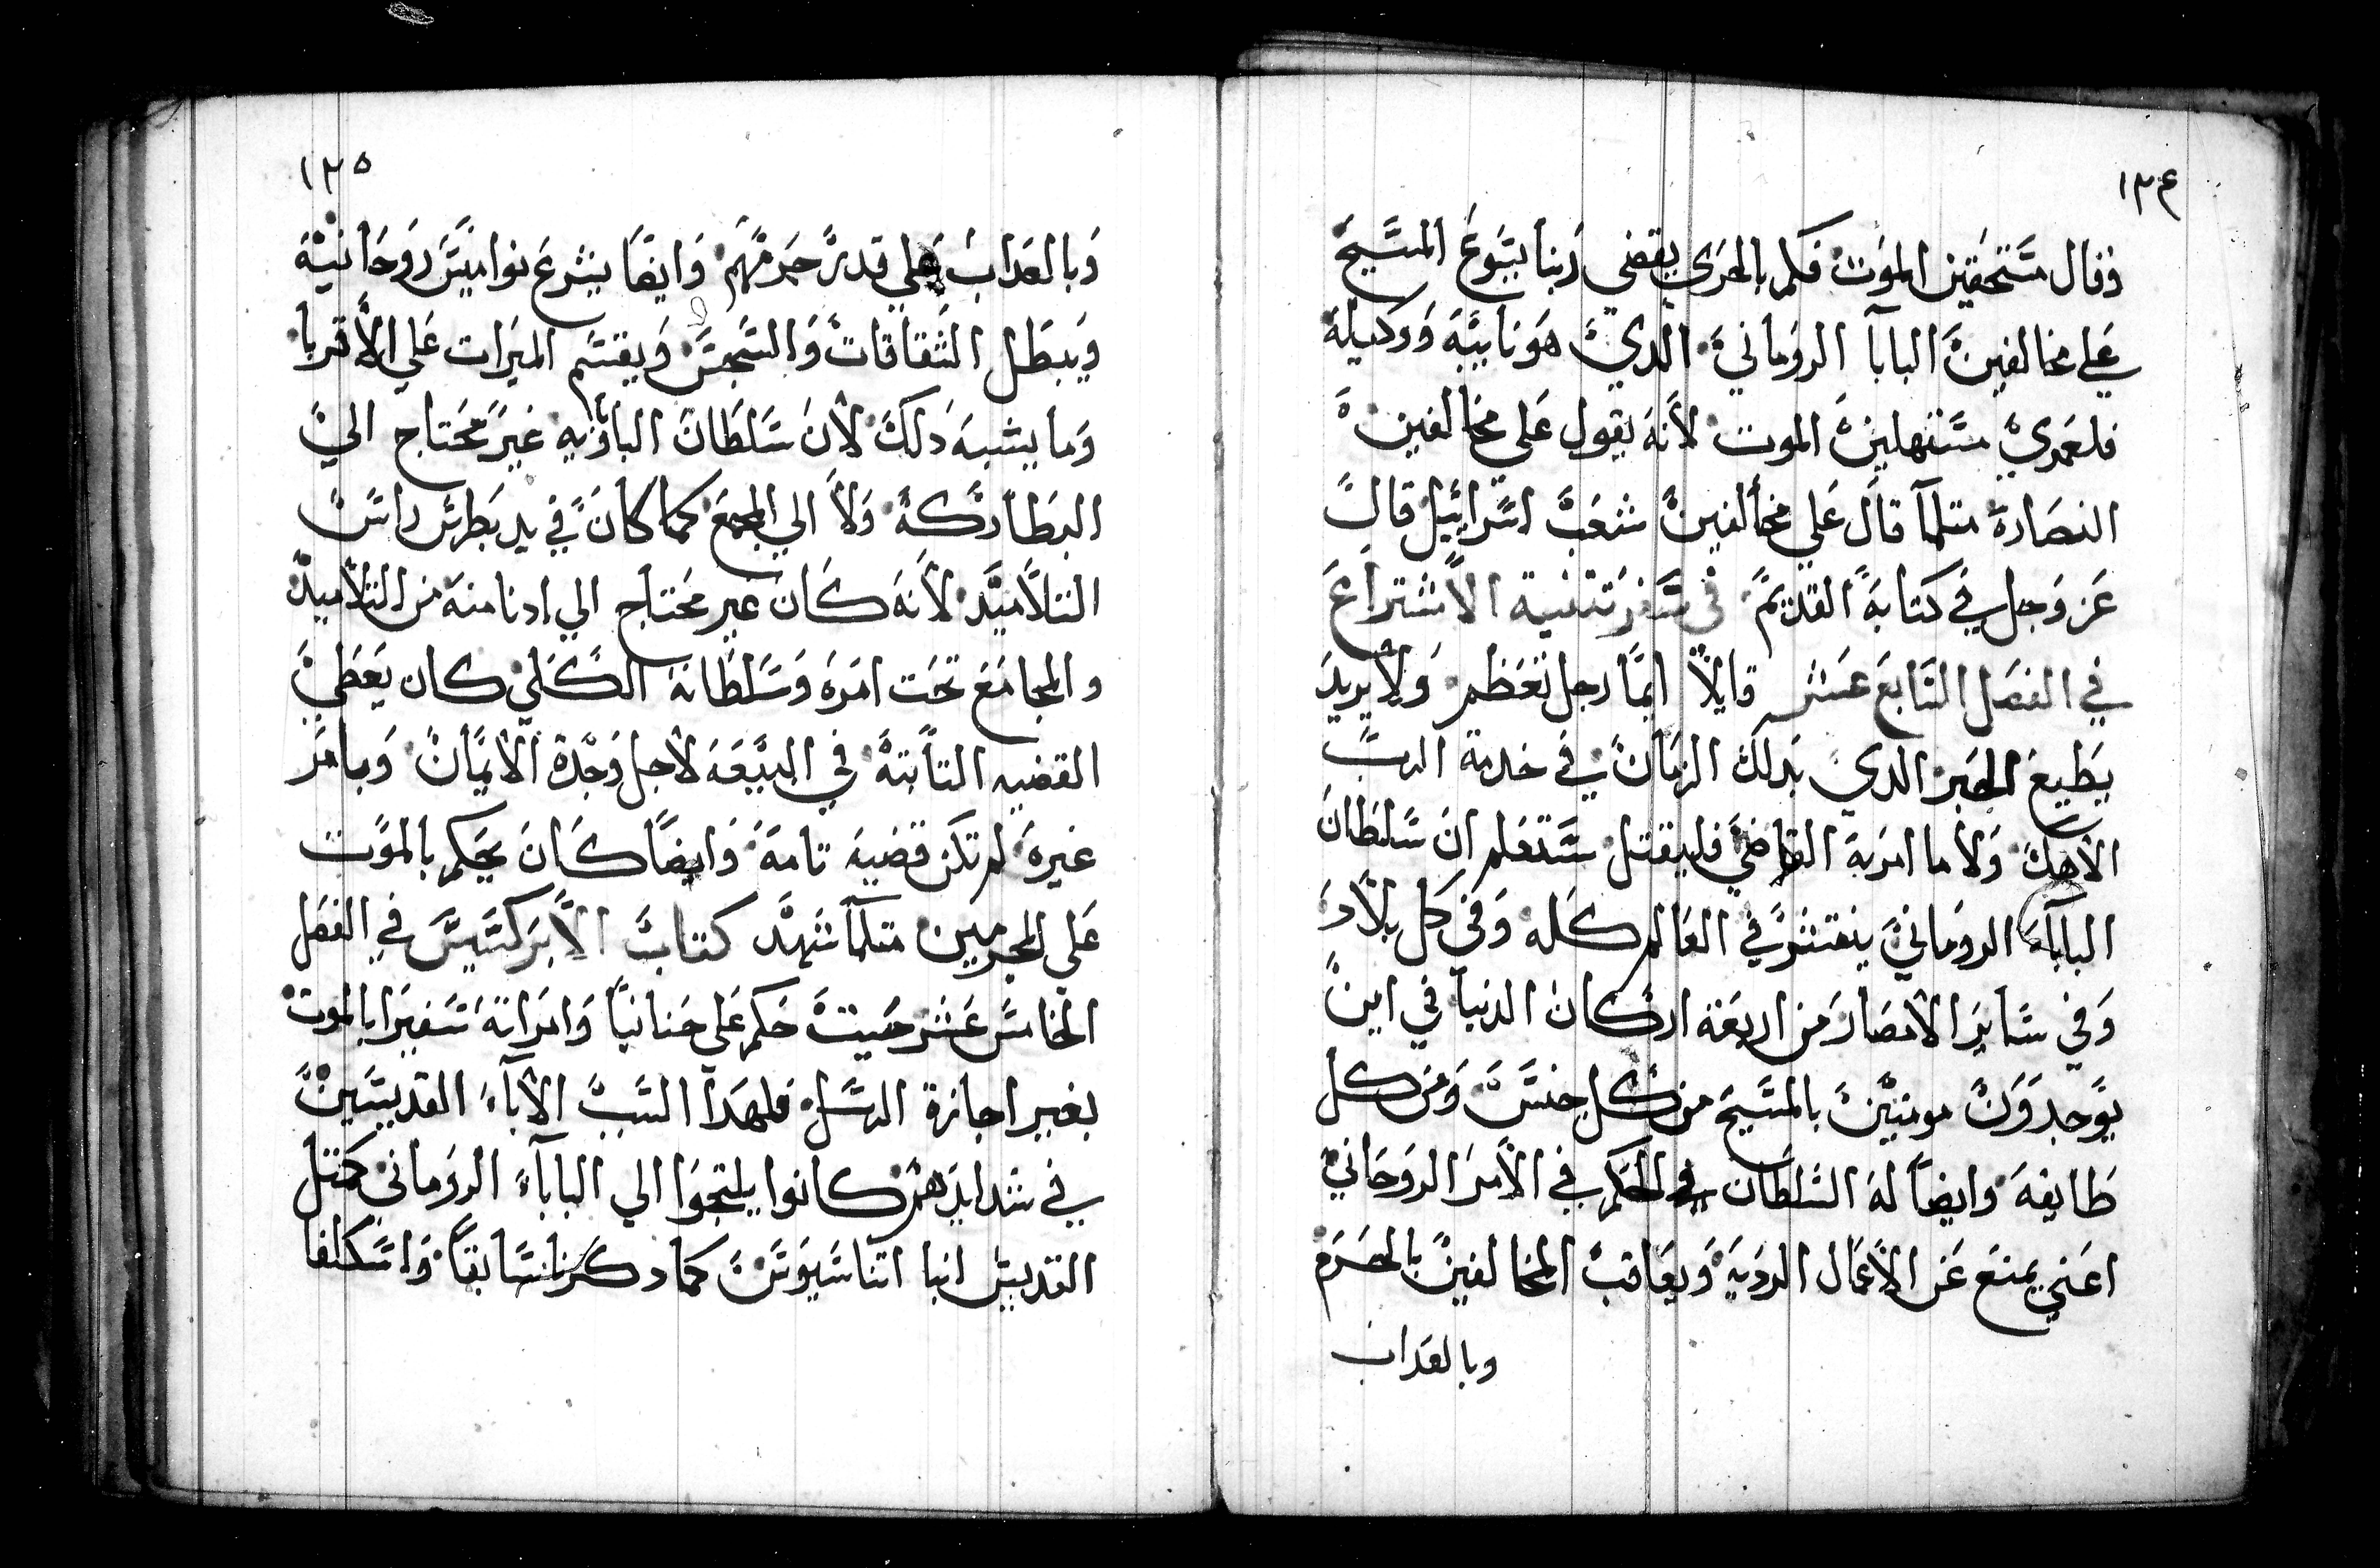 ١٣٤
وقال مستحقين الموت فكم بالحري يقضي ربنا يسوع المسيح
علي مخالفين البابا الروماني الدي هو نايبه ووكيله
فلعمري مستهلين الموت لانه يقول علي مخالفين
النصاره متلما قال علي مخالفين شعب اسراييل قال
عز وجل في كتابه القديم في سفر تتنية الاشتراع
في الفصل السابع عشر قايلا ايما رجل تعظم ولا يريد
يطيع الحبر الدي بدلك الزمان في خدمة الرب
الاهك ولا ما امر به القاضي فليقتل ستعلم ان سلطان
البابا الروماني ينتشر في العالم كله وفي كل بلاد
وفي ساير الامصار من اربعة اركان الدنيا في اين
يوجدون مومنين بالمسيح من كل جنس ومن كل
طايفه وايضا له السلطان في الحكم في الامر الروحاني
اعني يمنع عن الاعمال الرديه ويعاقب المخالفين بالحرم
وبالعداب
١٣٥
وبالعداب علي قدر جرمهم وايضا يشرع نواميس روحانية
ويبطل الشقاقات والسجس ويقسم الميرات علي الاقربا
وما يشبه دلك لان سلطان الباباويه غير محتاج الي
البطاركة ولا الي المجمع كما كان في يد بطرس راس
التلاميد لانه كان غير محتاج الي ادنا منه من التلاميد
والمجامع تحت امره وسلطانه الكلي كان يعطي
القضيه التابته في البيعه لاجل وحدة الايمان وبامر
غيره لم تكن قضيه تامة وايضا كان يحكم بالموت
علي المجرمين متلما شهد كتاب الابركسيس في الفصل
الخامس عشر حيت حكم علي حنانيا وامراته سفيرا بالموت
بغير اجازة الرسل فلهدا السبب الاباء القديسين
في شدايدهم كانوا يلتجوا الي البابا الروماني كمتل
القديس انبا اتناسيوس كما دكرنا سابقا واسكلفا